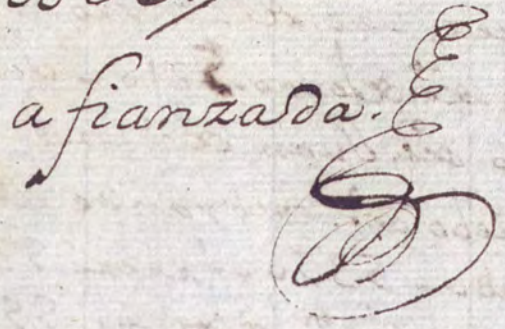 a fianzada.